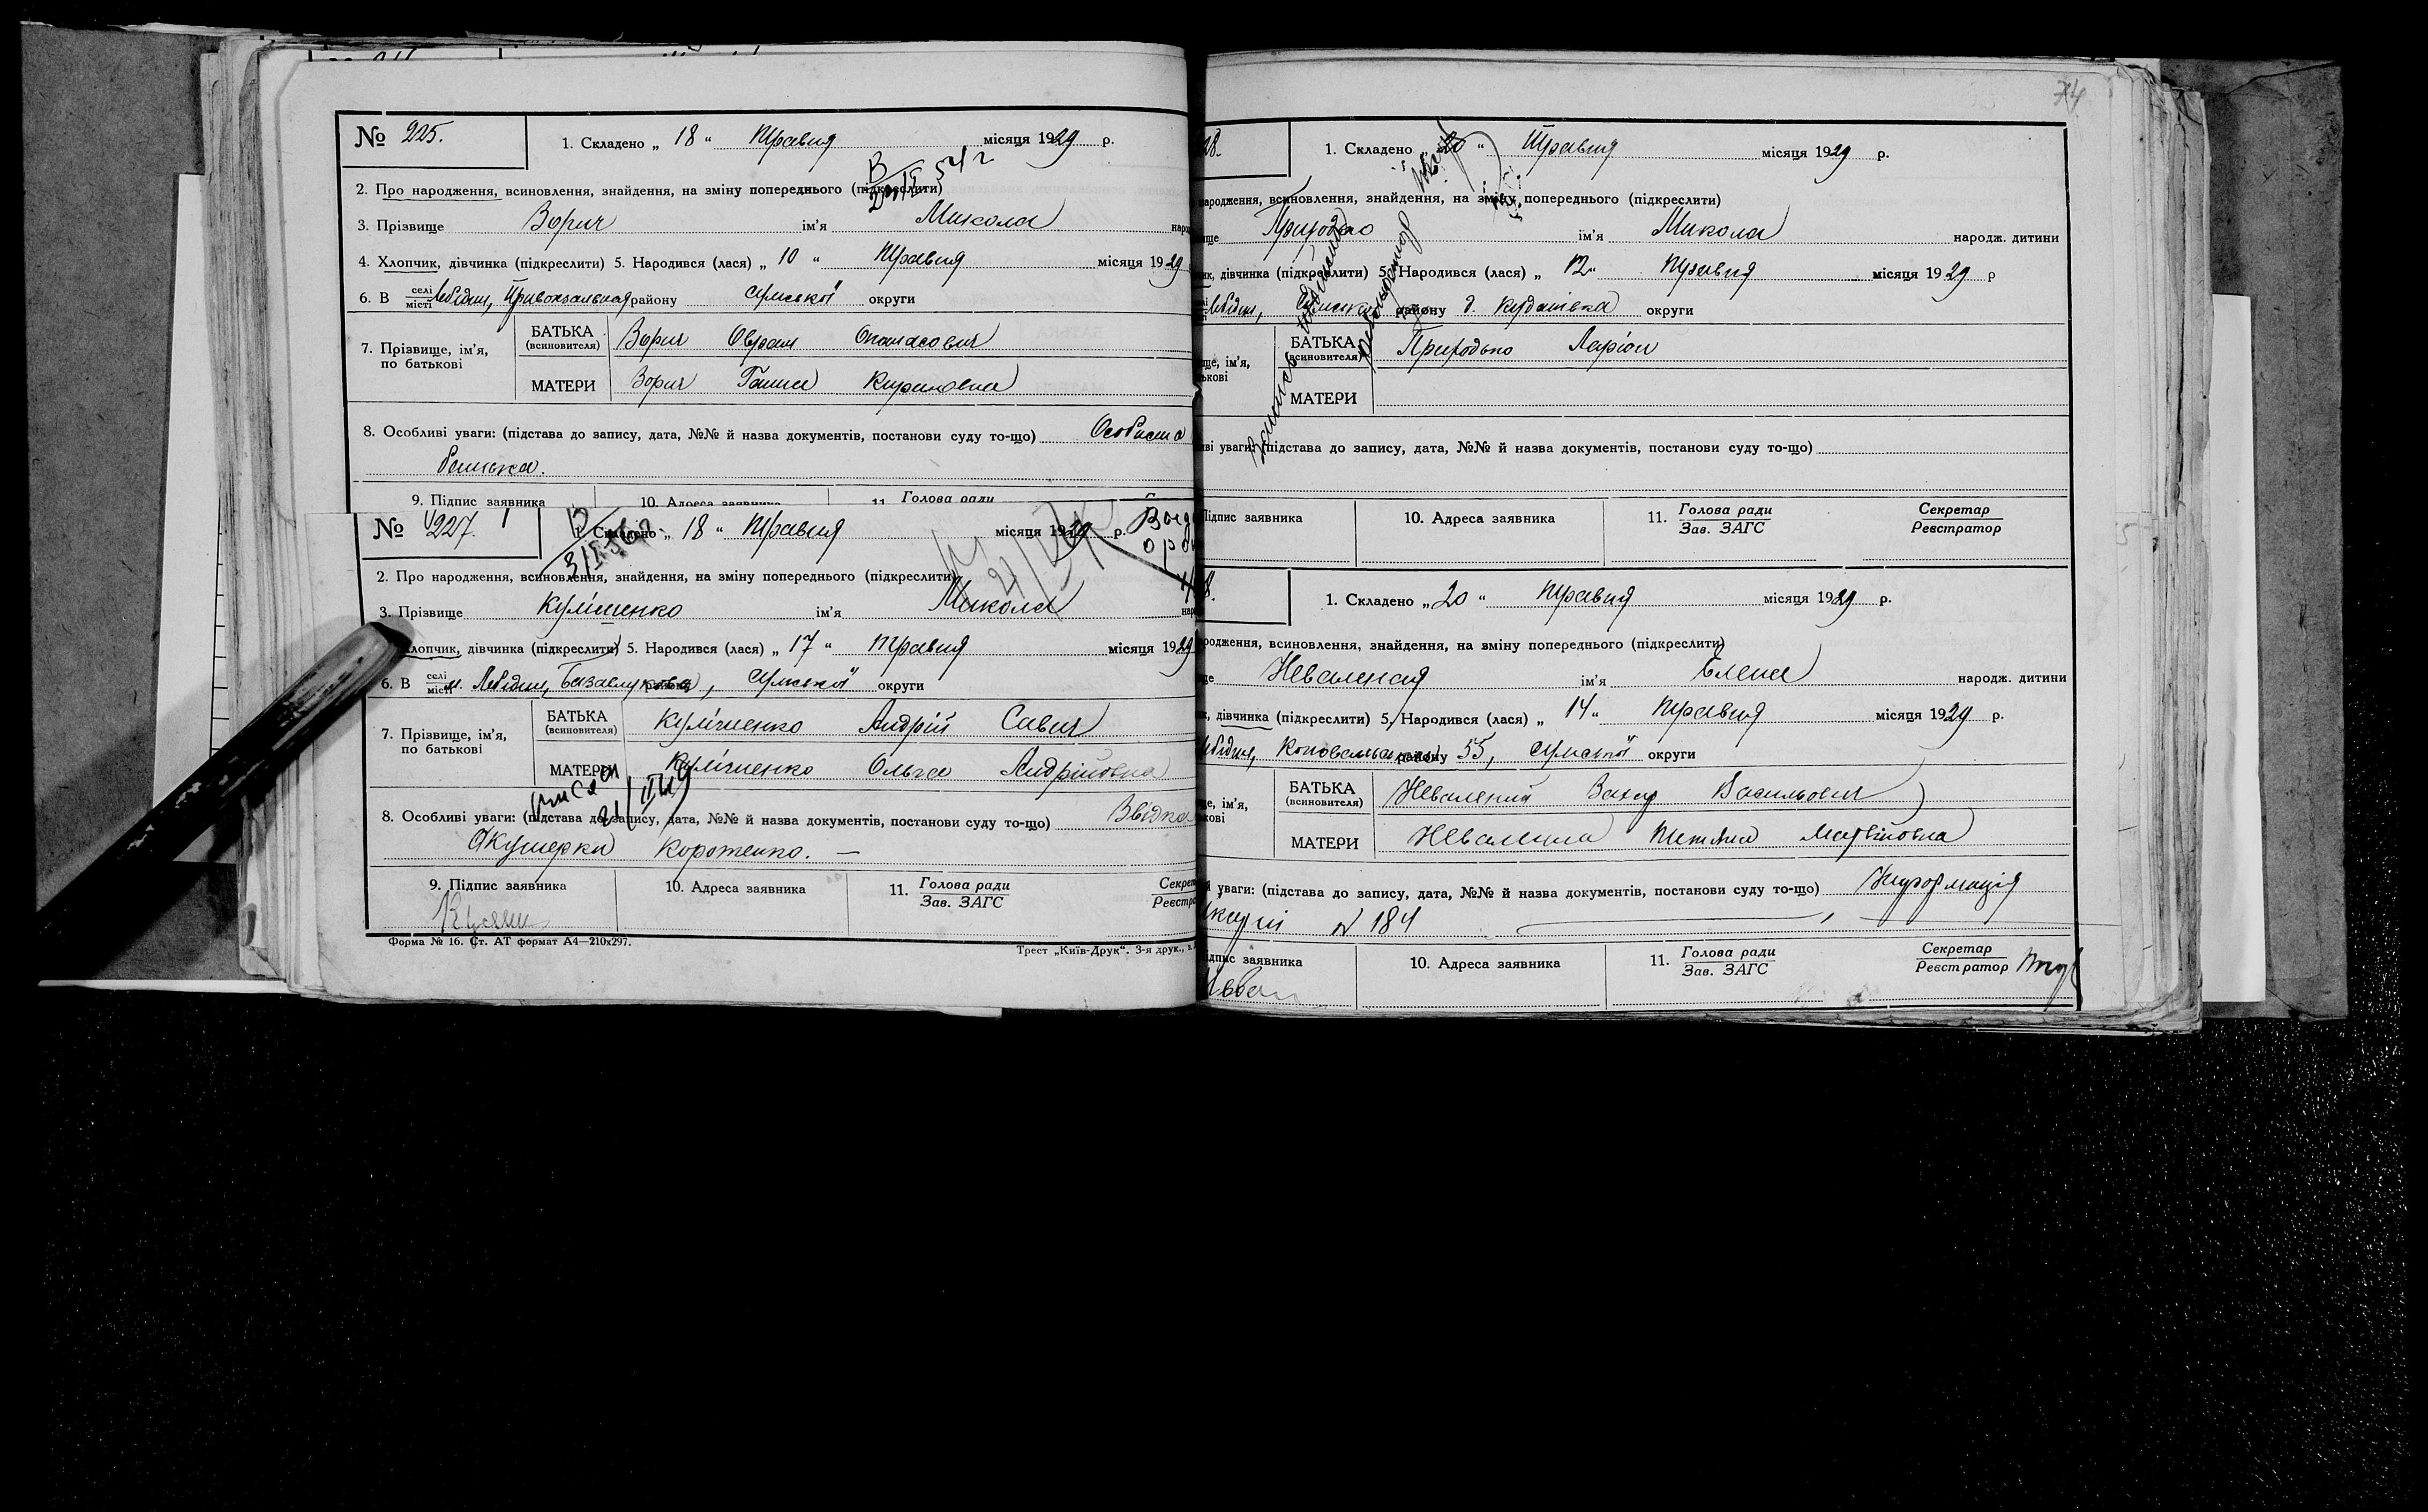 № 225.
1. Складено „ 18 “ Травня місяця 1929 р.
2. Про народження, всиновлення, знайдення, на зміну попереднього (підкреслити)
3. Прізвище Зорич ім'я Микола
4. Хлопчик, дівчинка (підкреслити) 5. Народився (лася) „ 10 “ Травня місяця 1929
6. В селі місті Лебедин, Привокзальная району Сумської округи
7. Прізвище, ім'я, по батькові
БАТЬКА (всиновителя) Зорич Овраам Опанасович
МАТЕРИ Зорич Ганна Кириловна
8. Особливі уваги: (підстава до запису, дата, №№ й назва документів, постанови суду то-що) Особиста
батька.
9. Підпис заявника 10. Адреса заявника 11. Голова ради
№ 227.
1. Складено „ 18 “ Травня місяця 1929 р.
2. Про народження, всиновлення, знайдення, на зміну попереднього (підкреслити)
3. Прізвище Кулішенко ім'я Микола
Хлопчик, дівчинка (підкреслити) 5. Народився (лася) „ 17 “ Травня місяця 1929
6. В селі місті м. Лебедин, району, Сумської округи
7. Прізвище, ім'я, по батькові
БАТЬКА (всиновителя) Кулішенко Андрій Савич
МАТЕРИ Кулішенко Ольга Андрійовна
8. Особливі уваги: (підстава до запису, дата, №№ й назва документів, постанови суду то-що) Звідка
Окушерки Коротенко. —
9. Підпис заявника 10. Адреса заявника 11. Голова ради Зав. ЗАГС
Форма № 16. Ст. АТ формат А4—210х297. Трест „Київ-Друк“. 3-я друк.,
74
1. Складено „ 20 “ Травня місяця 1929 р.
народження, всиновлення, знайдення, на зміну попереднього (підкреслити)
Приходько ім'я Микола народж. дитини
дівчинка (підкреслити) 5. Народився (лася) „ 12 “ Травня місяця 1929 р
Лебедин, району округи
БАТЬКА (всиновителя) Приходько Ларіон
МАТЕРИ
уваги: (підстава до запису, дата, №№ й назва документів, постанови суду то-що)
Підпис заявника 10. Адреса заявника 11. Голова ради Зав. ЗАГС Секретар Реєстратор
1. Складено „ 20 “ Травня місяця 1929 р.
народження, всиновлення, знайдення, на зміну попереднього (підкреслити)
Неваленая ім'я Елена народж. дитини
дівчинка (підкреслити) 5. Народився (лася) „ 14 “ Травня місяця 1929 р.
Лебедин, району 55, Сумської округи
БАТЬКА (всиновителя) Невалений Захар Васильович
МАТЕРИ Неваленна Тетяна Матвійовна
уваги: (підстава до запису, дата, №№ й назва документів, постанови суду то-що) Інформація
№ 184
Підпис заявника 10. Адреса заявника 11. Голова ради Зав. ЗАГС Секретар Реєстратор